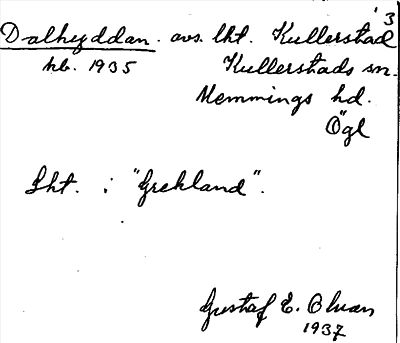 '3
Dalhyddan. avs. lht. Kullerstad
hb. 1935 Kullerstads sn.
Memmings hd.
Ögl
Lht. i "Grekland".
Gustaf E. Olvan
1937